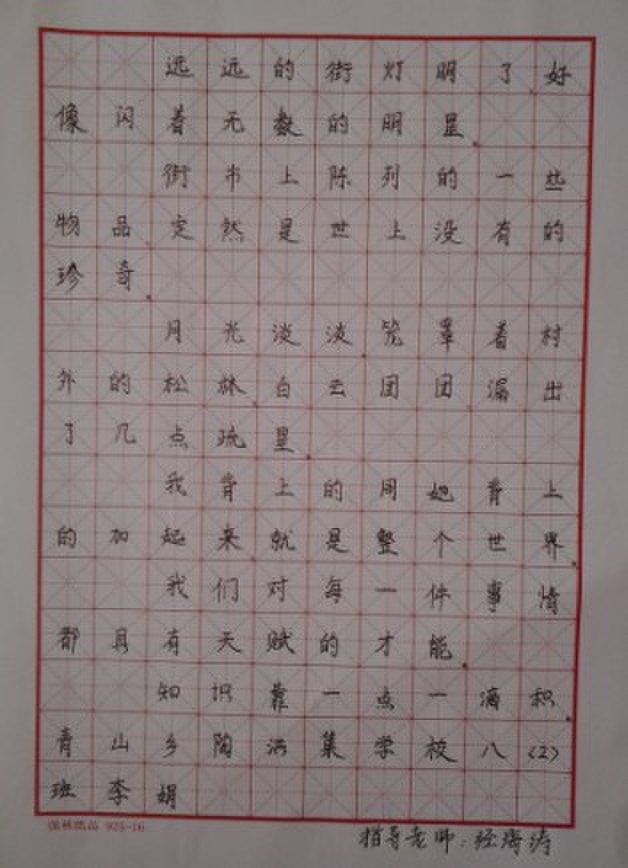 远远的街灯明了好
像闪着无数的明星。
街市上陈列的一些
物品定然是世上没有的
珍奇。
月光淡淡.笼罩着村
外的松林.白云团团.漏出
了几点疏星.
我背上的同她背上
的加起来就是整个世界.
我们对每一件事情
都具有天赋的才能.
知识靠一点一滴积.
青山乡陶洪集学校八(2)
班李娟
儒林纸品 925-16
指导老师:经海涛